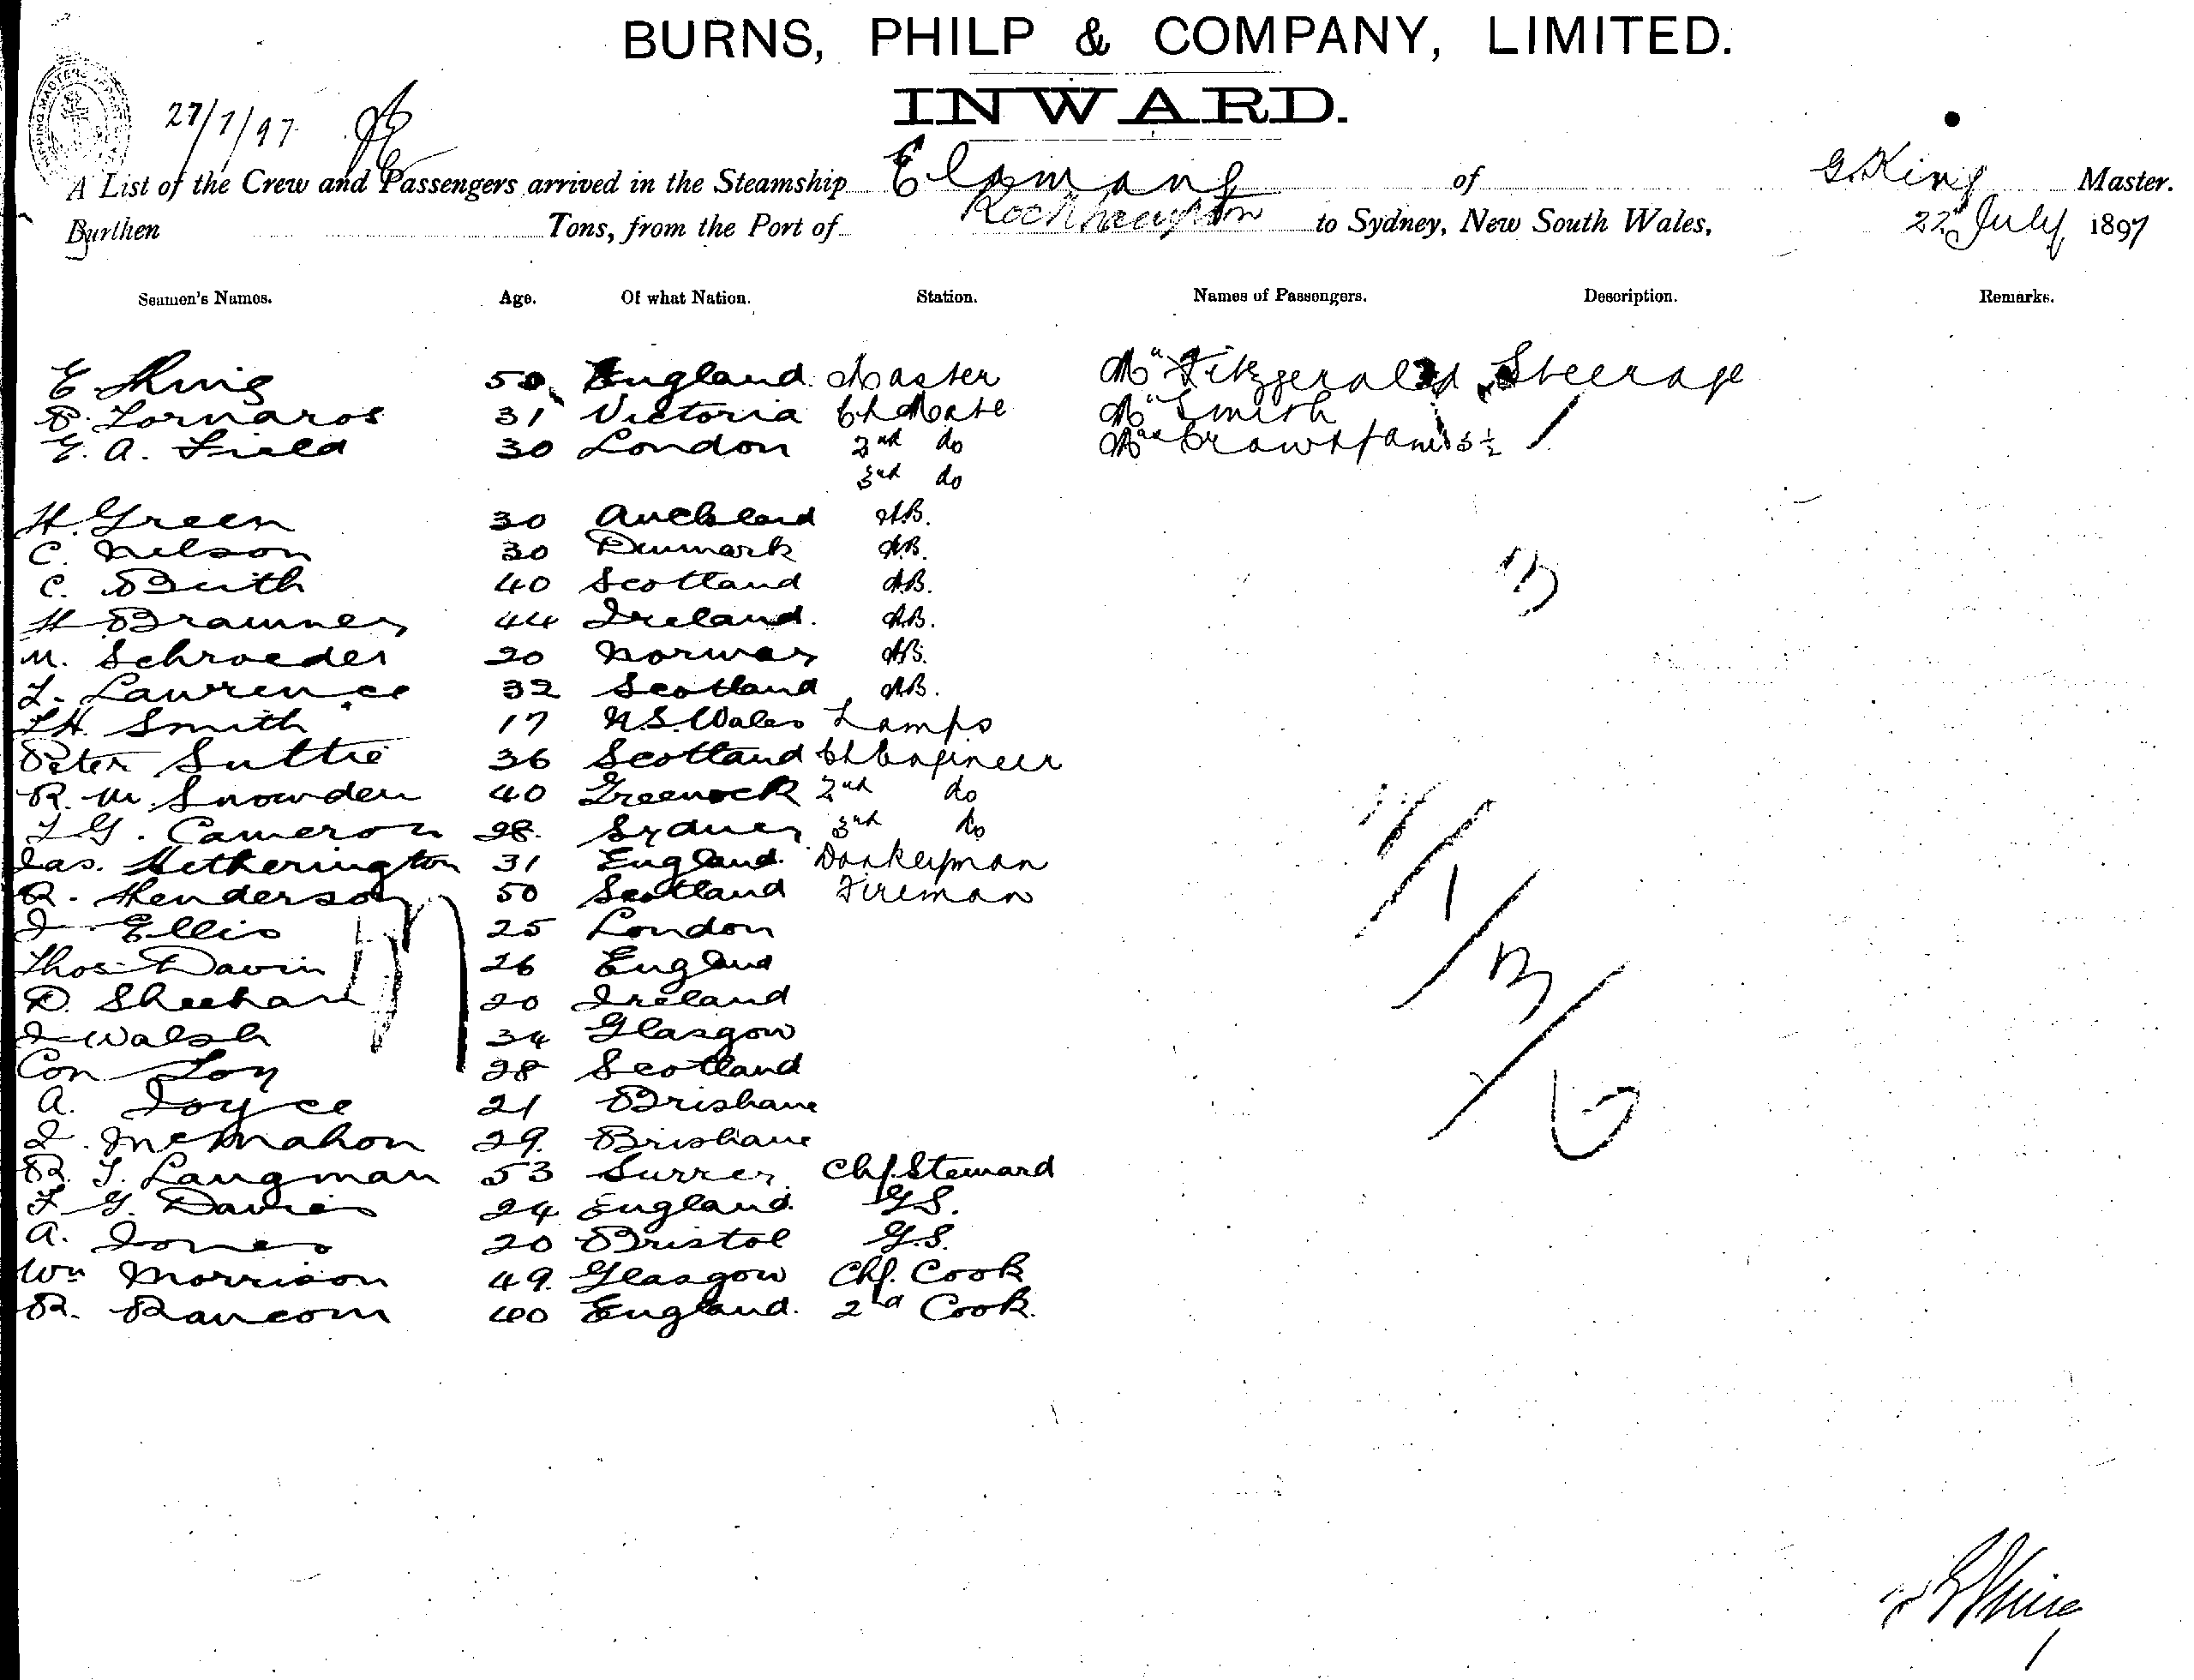 BURNS, PHILP & COMPANY, LIMITED.
INWARD.
27/7/97
A List of the Crew and Passengers arrived in the Steamship Elamang of G. King Master.
Burthen Tons, from the Port of Rockhampton to Sydney, New South Wales, 22 July 1897
Seamen's Names. Age. Of what Nation. Station. Names of Passengers. Description. Remarks.
E King 50 England Master Mr Fitzgerald Steerage
P. Fornaros 31 Victoria Ch Mate Mr Smith
G. A. Field 30 London 2nd do
3rd do
H. Green 30 Auckland A.B.
C. Nelson 30 Denmark A.B.
C. Beith 40 Scotland A.B.
H Brawner 44 Ireland. A.B.
M. Schroeder 20 Norway A.B.
L. Lawrence 32 Scotland A.B.
Smith 17 N.S. Wales Lamps
Peter Suttie 36 Scotland Ch Engineer
R. M. Snowden 40 Greenock 2nd do
Cameron 28. Sydney 3rd do
Jas. Hetherington 31 England. Donkeyman
R. Henderson 50 Scotland Fireman
J Ellis 25 London
Thos Davin 26 England
D. Sheehan 20 Ireland
J Walsh 34 Glasgow
Con Loy 28 Scotland
A. Joyce 21 Brisbane
J. McMahon 29. Brisbane
R. J. Langman 53 Surrey Chf. Steward
F G. Davies 24 England. G.S.
A. Jones 20 Bristol G.S.
Wm Morrison 49. Glasgow Chf. Cook
R. Rancom 40 England. 2nd Cook.